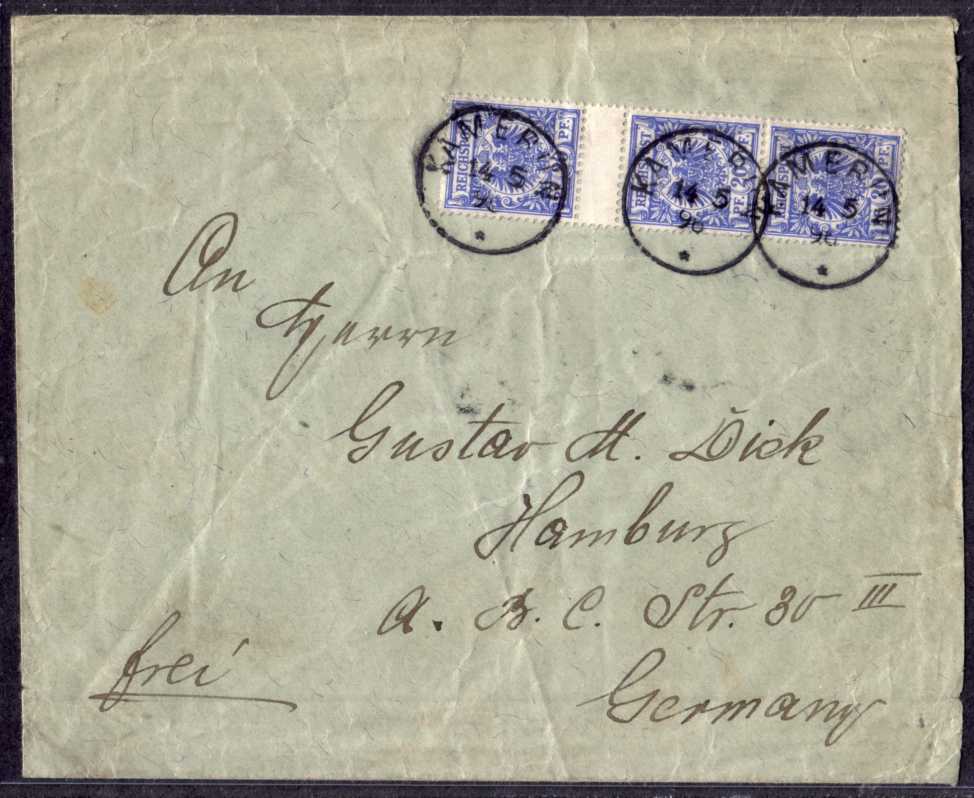 KAMERUN
14 5
KAMERUN
14 5
98
KAMERUN
14 5
98
An
Herrn
Gustav M. Dick
Hamburg
A. B. C. Str. 30 III
Germany
frei